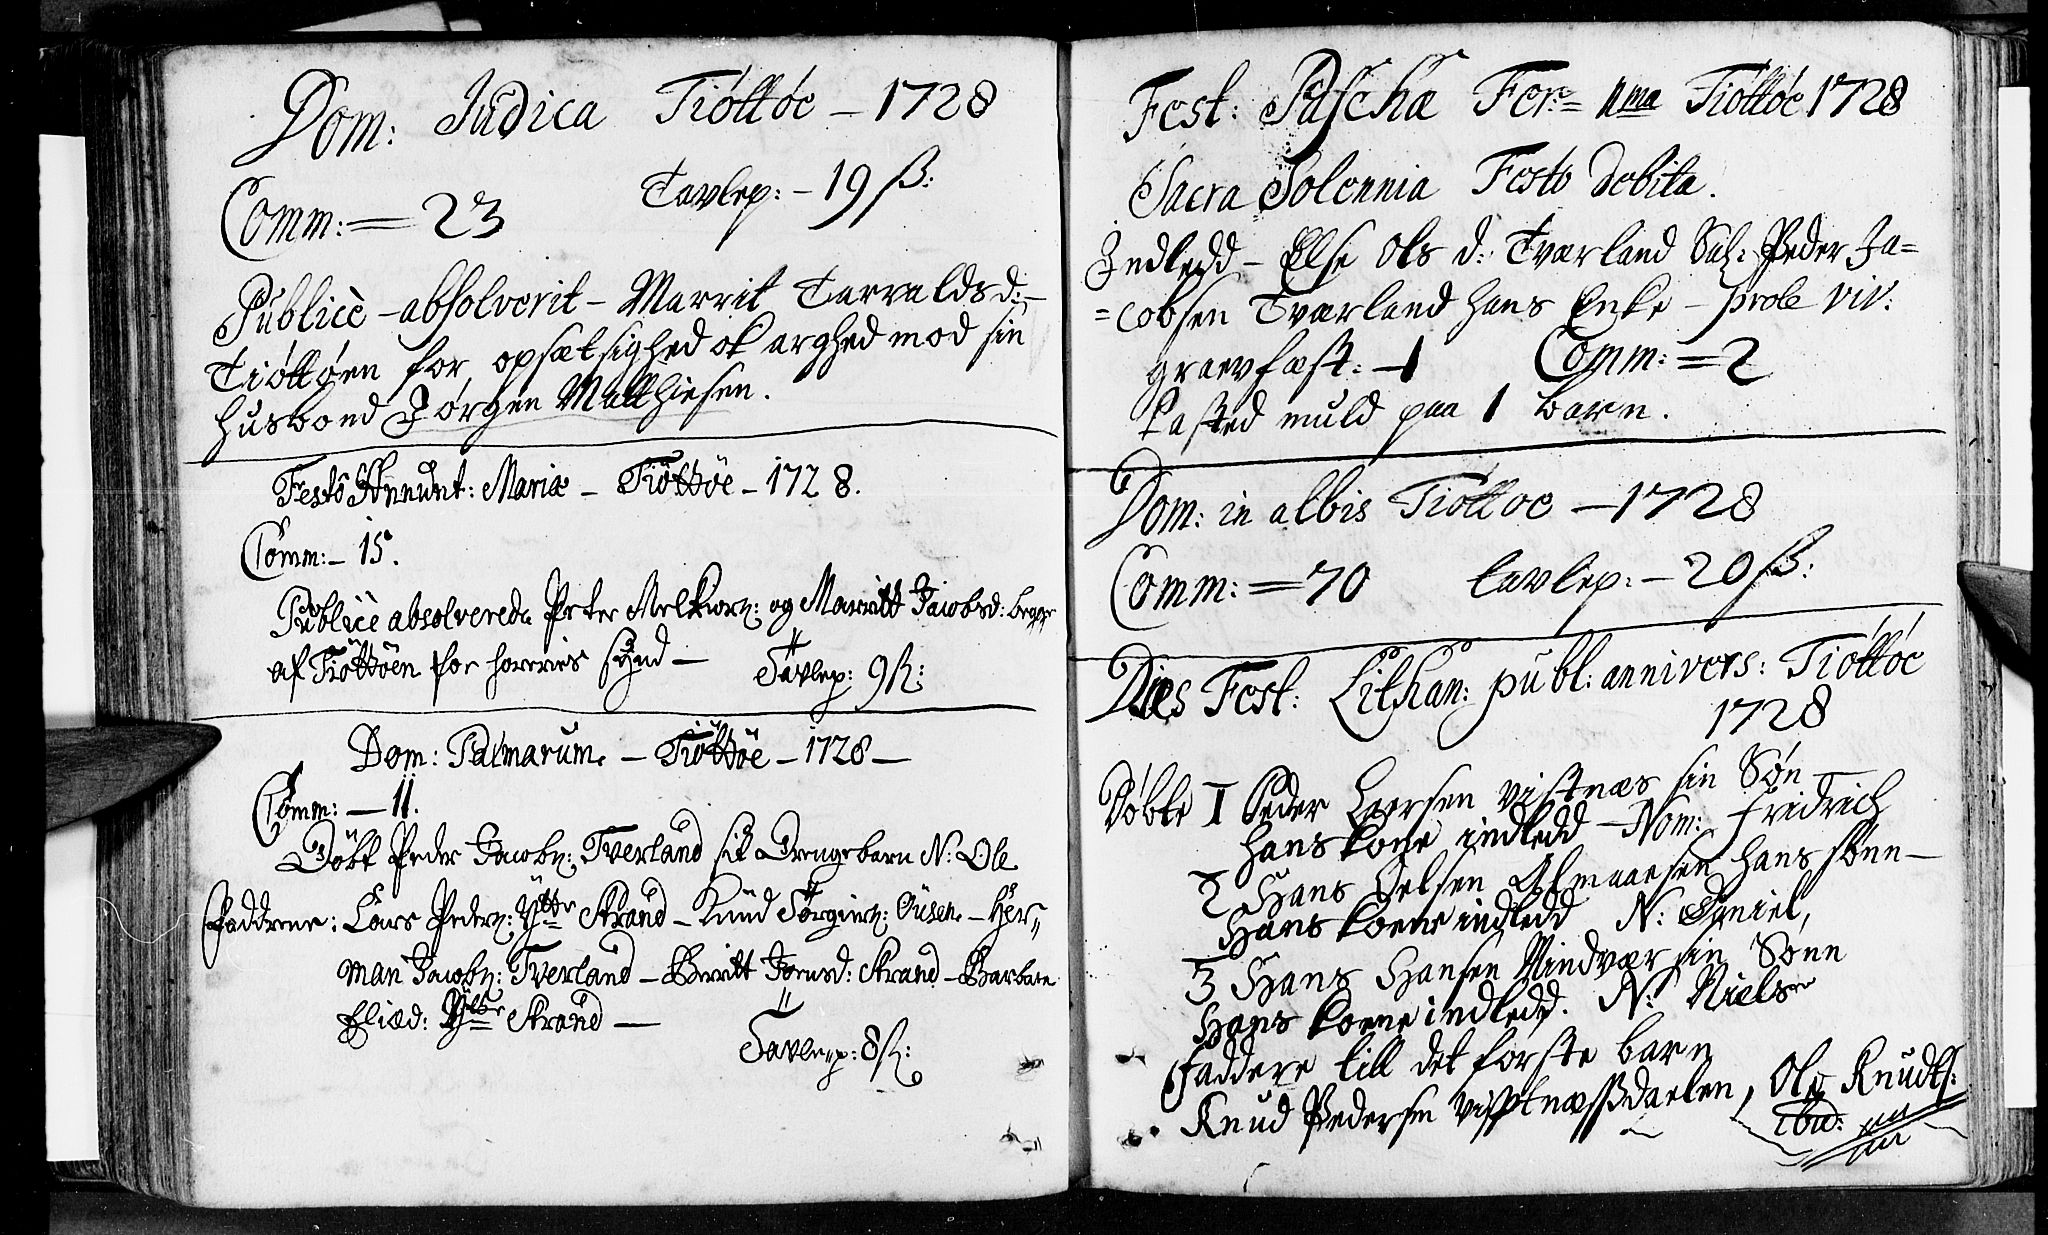 Dom: Judica Tiøttøe – 1728
Comm: = 23 Tavlep: – 19 ß:
Publicè – absolverit – Marrit Tarraldsd: –
Tiøttøen for opsætsighed ok arghed mod sin
husbond Jørgen Matthiesen.
Festo Annunt: Mariæ – Tiøttøe – 1728.
Comm: – 15.
Publicè absolverede Peter Melkiorz: og Marritt Jacobsd: begge
af Tiøttøen for horeries synd –
Tavlep: 9 ß:
Dom: Palmarum – Tiøttøe – 1728 –
Comm: – 11.
Døbt Peder Jacobz: Tverland sit Drengebarn N: Ole
Faddrene: Lars Pederz: Ytter Strand – Knud Jørginz: – Her=
man Jacobz: Tverland – Berritt Joensd: Strand – Barbara
Eliæd: Ytter Strand –
Tavlep: 8 ß:
Fest: Paschæ Fer: = IIma Tiøttøe 1728
Sacra Solennia Festo debita.
Indledd – Else Ols d: Tværland Sal: Peder Ja=
=cobsen Tværland hans Enke – prole viv:
graevfæst: – 1 Comm: = 2
Kasted muld paa 1 barn.
Dom: in albis Tiøttøe – 1728
Comm: = 70 tavlep: – 20 ß:
Dies Fest: Lithan: publ: annivers: Tiøttøe
1728
Døbte 1 Peder Larsen vistnæs sin Søn
hans kone indledd – Nom: Fridrich
2 Hans Oelsen hans sønn –
Hans koene indledd N: Daniel,
3 Hans Hansen Mindvær sin Sønn
Hans koene indledd. N: Niels
Faddere till det første barn
Knud Pedersen vistnæssdaelen, Ole Knudts:
ibid: